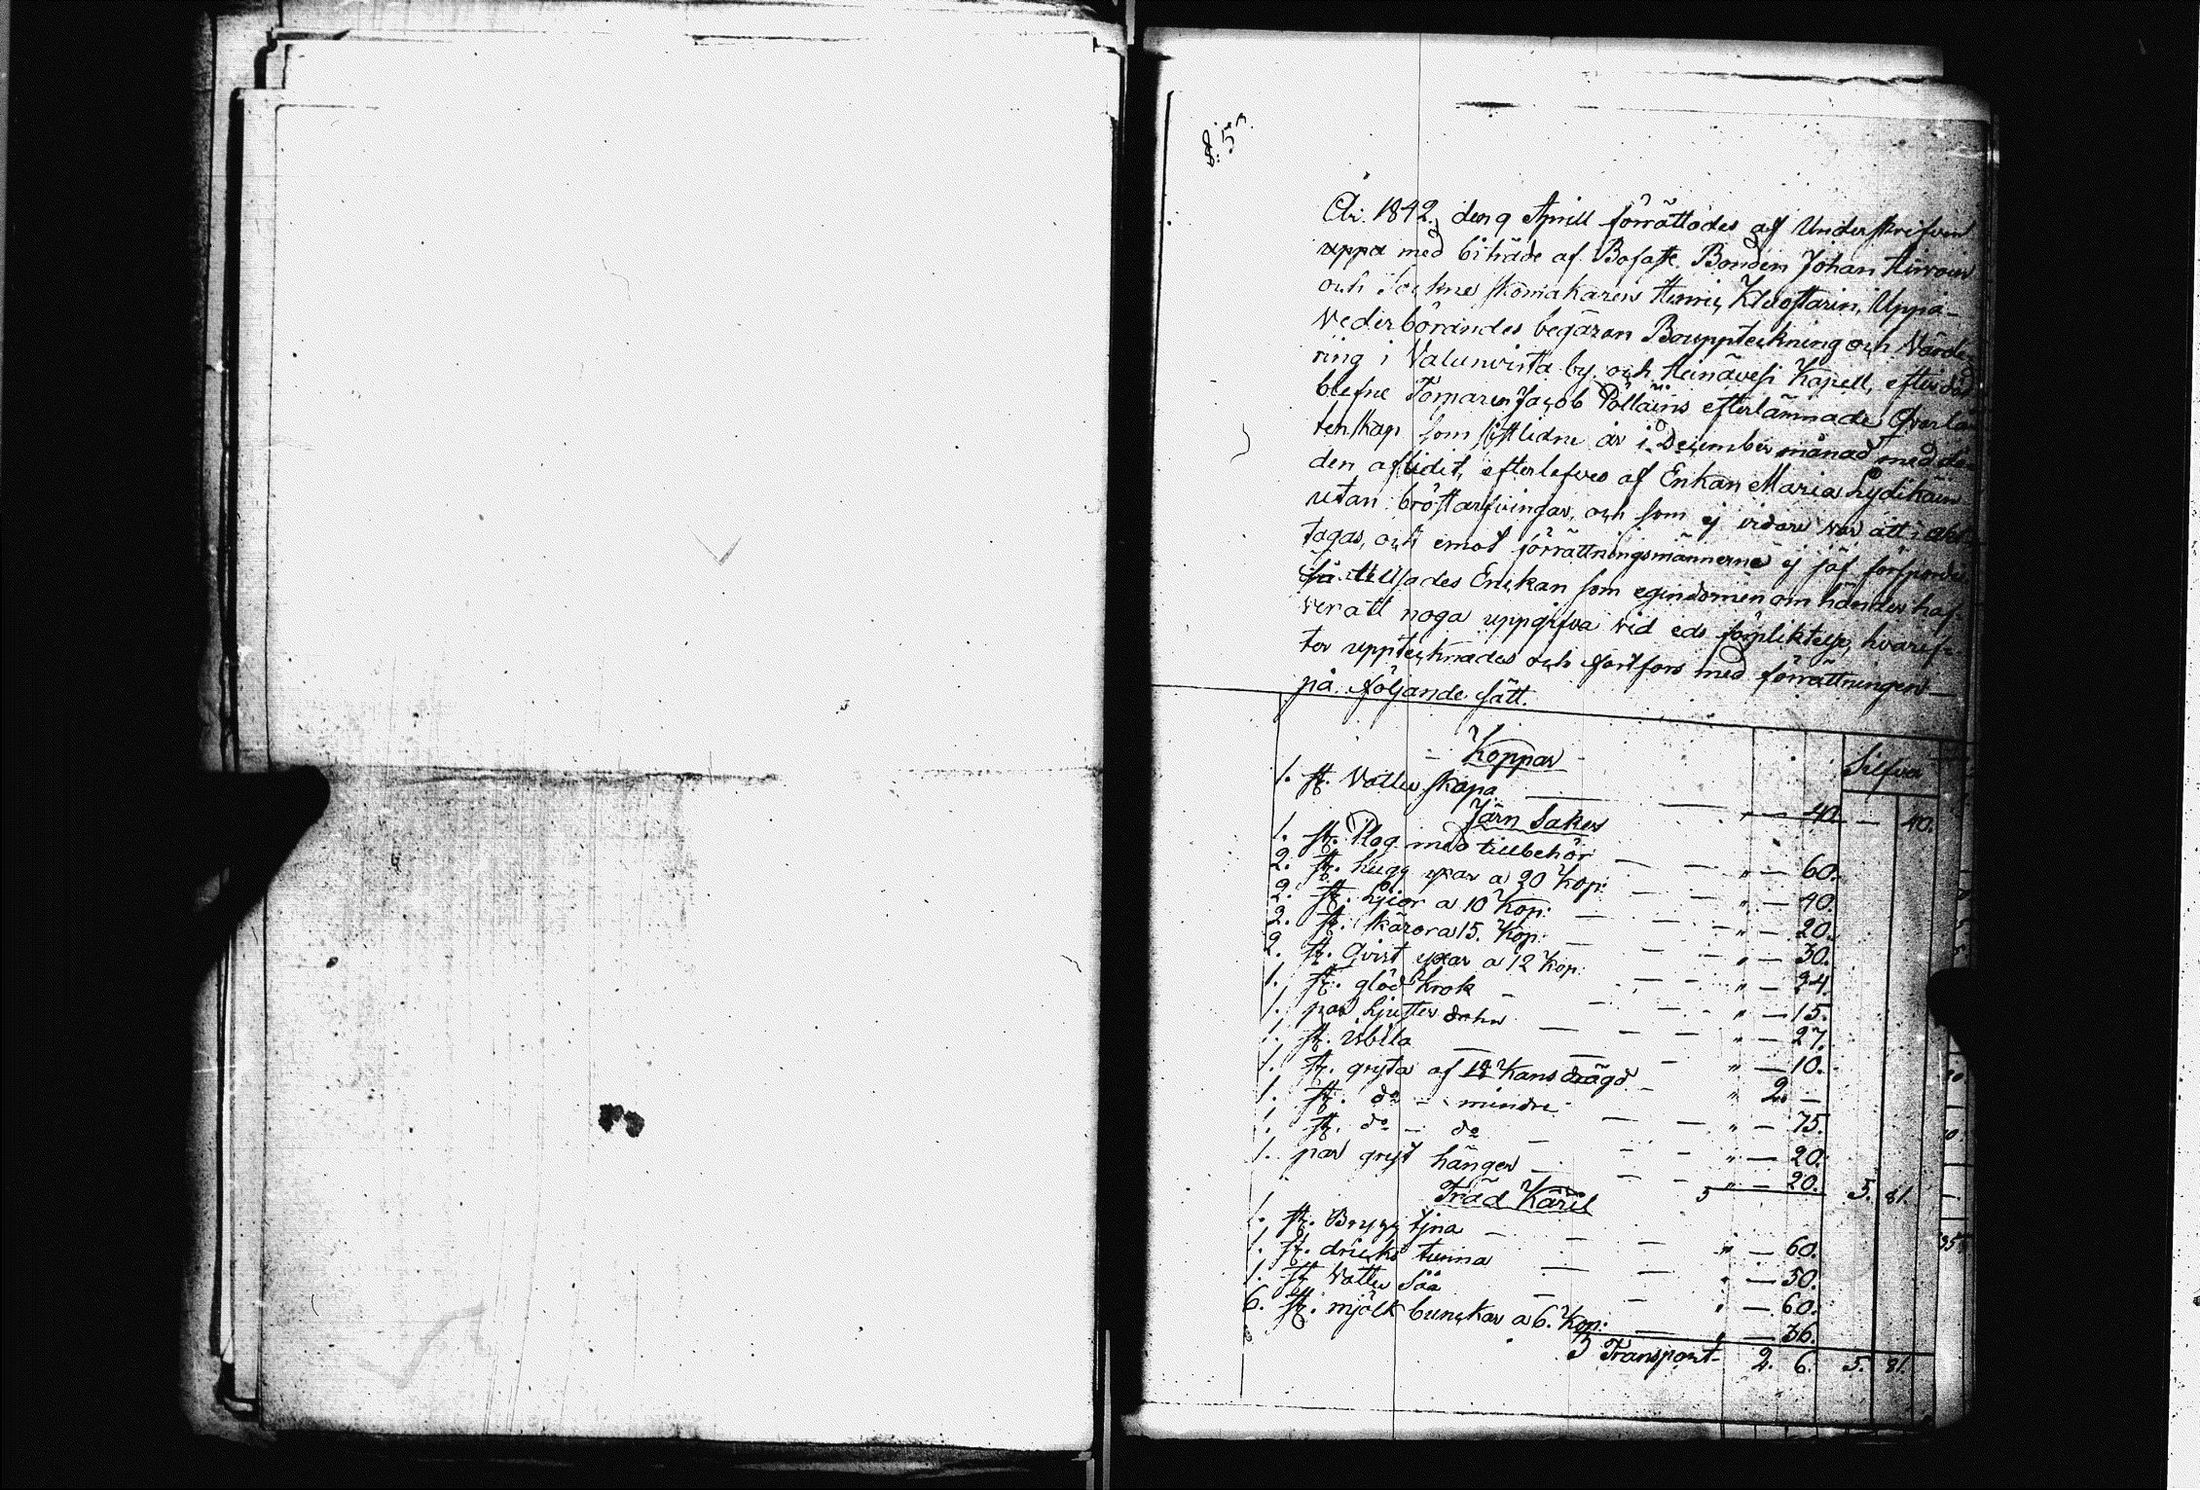 År 1842 den 9 Aprill förrättades af Underskrifven
uppå med biträde af Bofaste Bonden Johan
och Sockne skomakaren Henric Uppå
vederbörandes begäran Bouppteckning och Värde-
ring i Valunvirta by och Heinävesi Kapell, efter död
blefne Torparen Jacob Pölläins efterlämnade Qvarlå-
tenskap som sistlidne år i December månad med dö-
den aflidit, efterlefves af Enkan Maria Lydikäin
utan bröstarfvingar, och som ej vidare var att i akt
tagas, och emot förrättningsmännerne ej jäf försporde
så tillsades Enckan som egendomen om händer haf-
ver att noga uppgifva vid eds förpliktelse, hvaref-
ter upptecknades och fortfors med förrättningen
på följande sätt.
Silfver
Koppar
1. st. Vatten skapa " — 40. — 40.
Järn Saker
1. st. Plog med tillbehör " — 60.
2. st. hugg yxar a 20 Kop: " — 40.
2. st. Liior a 10 Kop: " — 20.
2. st. skäror a 15. Kop: " — 30.
2. st. Qvist yxar a 12 Kop: " — 24.
1. st. glöd Krok " — 15.
1. par 27.
1. st. isbila " — 10.
1. st. gryta af 12 Kans drägd " 2. —
1. st. do mindre " — 75.
1. st. do — do " — 20.
1. par gryt hänger " — 20.
5. 81.
Träd Käril
1. st. Brygg tjna " — 60.
1. st. dricks tunna " — 50.
1. st. Vatten Såå " — 60.
6. st. mjölk bunckar a 6. Kop: " — 36.
Transport 2. 6. 5. 81.